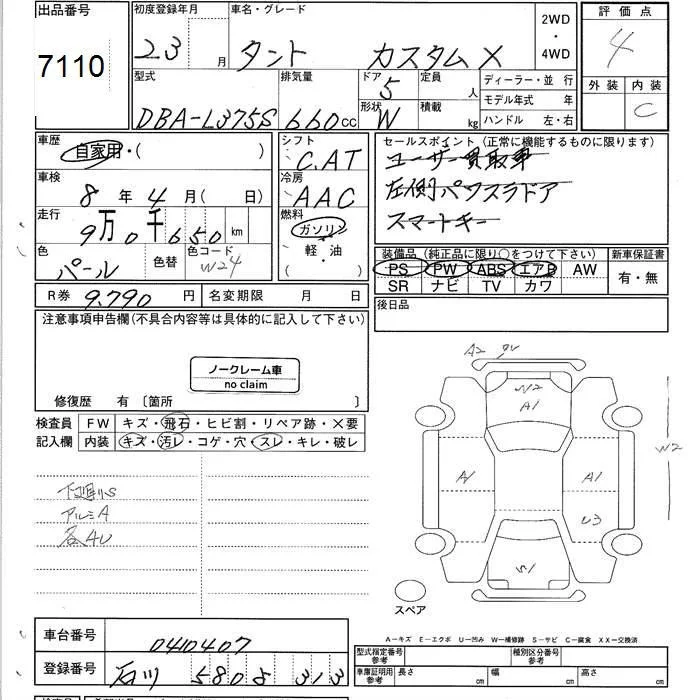 出品番号
7110
初度登録年月
23 月
車名・グレード
タント カスタム X
2WD
・
4WD
評価点
4
外装 内装
C
型式
DBA-L375S
排気量
660 cc
ドア
5
形状
W
定員
人
積載
kg
ディーラー・並 行
モデル年式 年
ハンドル 左・右
車歴
自家用・( )
車検
8 年 4 月( 日)
走行
9万0千650 km
色
パール
色替
色コード
W24
シフト
C.AT
冷房
AAC
燃料
ガソリン
・
軽・油
セールスポイント (正常に機能するものに限ります)
ユーザー買取車
左側パワスラドア
スマートキー
装備品 (純正品に限り○をつけて下さい)
PS PW ABS エアB AW
SR ナビ TV カワ
新車保証書
有・無
後日品
R券 9,790 円
名変期限 月 日
注意事項申告欄(不具合内容等は具体的に記入して下さい)
ノークレーム車
no claim
修復歴 有 〔箇所 〕
検査員
記入欄
FW キズ・飛石・ヒビ割・リペア跡・×要
内装 キズ・汚レ・コゲ・穴・スレ・キレ・破レ
下廻りS
アルミA
各4U
A2
W2
A1
A1
A1
U3
W2
W1
スペア
A-キズ E-エクボ U-凹み W-補修跡 S-サビ C-腐食 XX-交換済
車台番号
0410407
登録番号
石川 580 さ 313
型式指定番号
参考
種別区分番号
参考
車庫証明用
参考
長さ cm
幅 cm
高さ cm